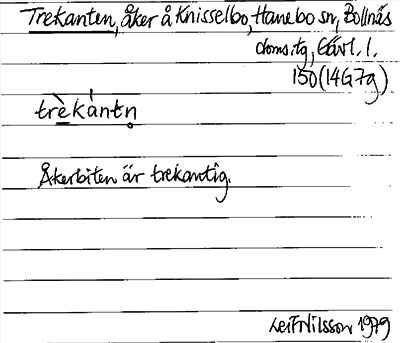 Trekanten, åker å Knisselbo, Hanebo sn, Bollnäs
domsitg, Gävl. l.
150 (14G7g)
trèkántn̥
Åkerbiten är trekantig.
Leif Nilsson 1979